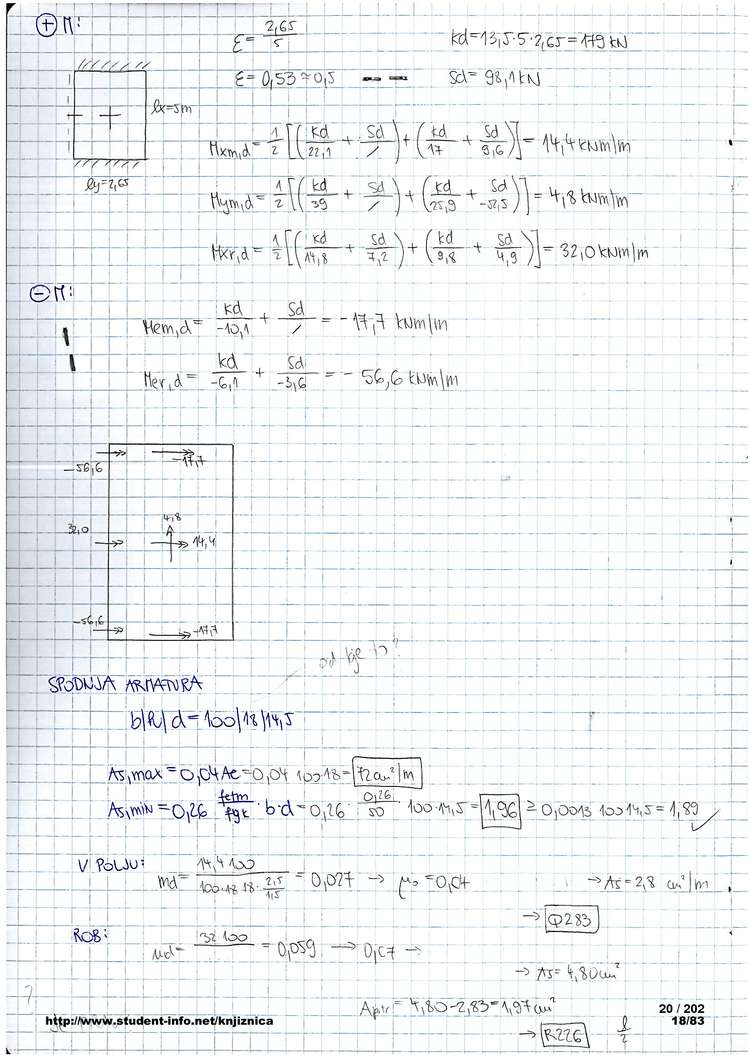 ⊕ M:
ε = 2,65/5
kd = 13,5·5·2,65 = 179 kN
ε = 0,53 ≈ 0,5
Sd = 98,1 kN
lx=5m
ly=2,65
Mxm,d = 1/2 [(kd/22,1 + Sd/∕) + (kd/17 + Sd/9,6)] = 14,4 kNm/m
Mym,d = 1/2 [(kd/39 + Sd/∕) + (kd/25,9 + Sd/-52,5)] = 4,8 kNm/m
Mxr,d = 1/2 [(kd/14,8 + Sd/7,2) + (kd/9,8 + Sd/4,9)] = 32,0 kNm/m
⊖ M:
Mem,d = kd/-10,1 + Sd/∕ = -17,7 kNm/m
Mer,d = kd/-6,1 + Sd/-3,6 = -56,6 kNm/m
-56,6
-17,7
32,0
4,8
14,4
-56,6
-17,7
od kje to?
SPODNJA ARMATURA
b/h/d = 100/18/14,5
As,max = 0,04 Ac = 0,04 100·18 = 72 cm²/m
As,min = 0,26 fctm/fyk · b·d = 0,26 · 0,26/50 · 100·14,5 = 1,96 ≥ 0,0013 100 14,5 = 1,89
V POLJU:
md = 14,4 100/100·18 18·2,5/1,5 = 0,027 → μ0 = 0,04
→ As = 2,8 cm²/m
→ Q283
ROB:
μd = 32 100 = 0,059 → 0,07 →
→ As = 4,80 cm²
Aptr = 4,80-2,83 = 1,97 cm²
→ R226
l/2
?
http://www.student-info.net/knjiznica
20 / 202
18/83